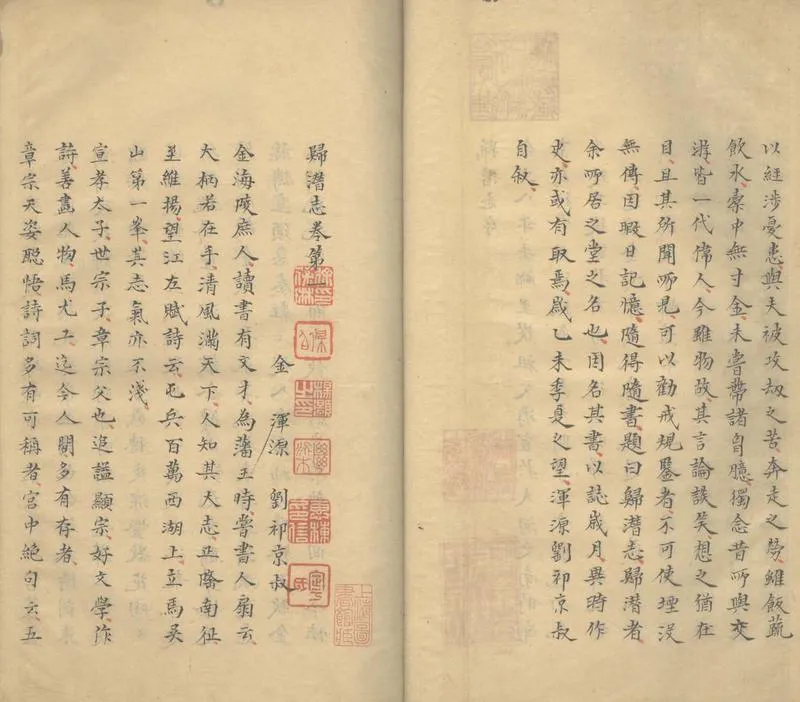 以經涉憂患與夫被攻刼之苦奔走之勞雖飯蔬
飲水橐中無寸金未嘗帶諸胷臆獨念昔所與交
游皆一代偉人今雖物故其言論談笑想之猶在
目且其所聞所見可以勸戒規鑒者不可使堙沒
無傳因暇日記憶隨得隨書題曰歸潛志歸潛者
余所居之堂之名也因名其書以誌歲月異時作
史亦或有取焉歲乙未季夏之望渾源劉祁京叔
自叙
歸潛志卷第一
金 渾源 劉祁京叔
金海陵庶人讀書有文才為藩王時嘗書人扇云
大柄若在手清風滿天下人知其大志正隆南征
至維揚望江左賦詩云屯兵百萬西湖上立馬吳
山第一峯其志氣亦不淺
宣孝太子世宗子章宗父也追謚顯宗好文學作
詩善畫人物馬尤工迄今人間多有存者
章宗天姿聡悟詩詞多有可稱者宮中絕句云五